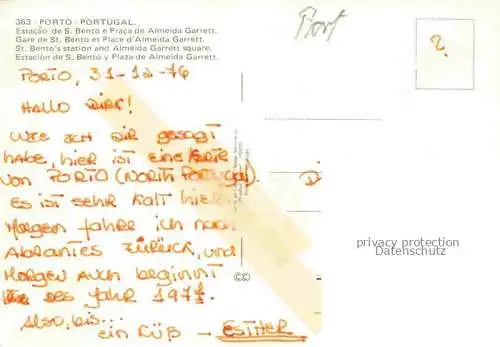 363 - PORTO - PORTUGAL.
Estação de S. Bento e Praça de Almeida Garrett.
Gare de St. Bento et Place d'Almeida Garrett.
St. Bento's station and Almeida Garrett square.
Estación de S. Bento y Plaza de Almeida Garrett.
Port
?
PORTO, 31-12-76
HALLO DIRK!
WIE ICH DIR gesagt
habe, hier ist eine Karte
von PORTO (NORTH PORTUGAL).
D
Es ist sehr kalt hier.
Morgen fahre ich nach
Abrantes zurück, und
privacy protection
Datenschutz
Morgen auch beginnt
des Jahr 1977.
Also, bis...
ein Küß - ESTHER